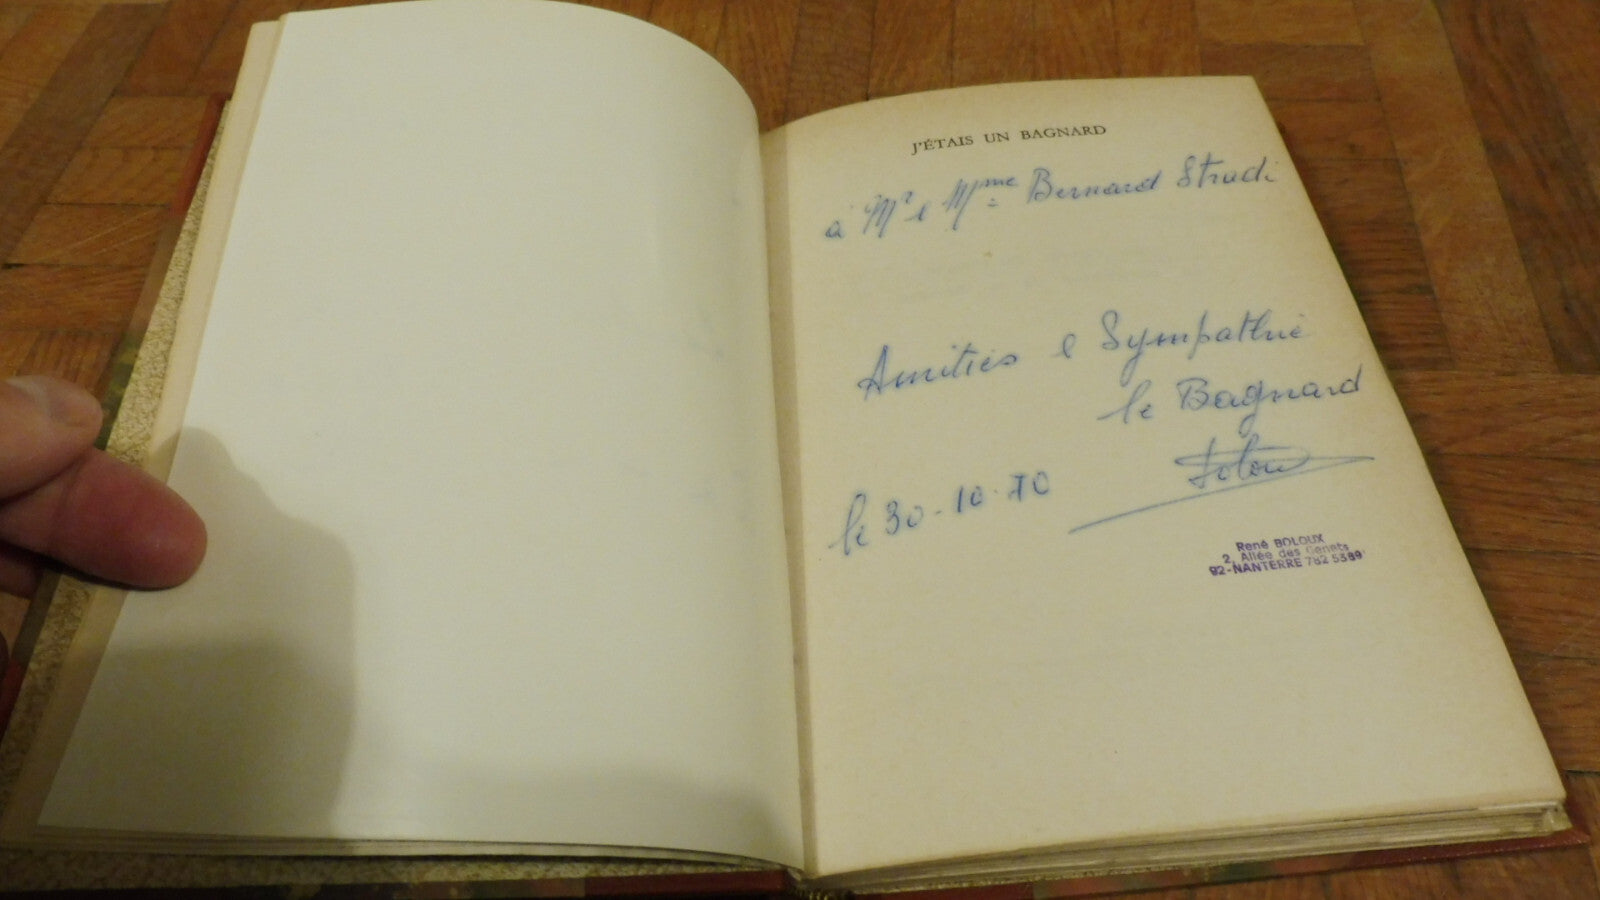 J'ÉTAIS UN BAGNARD
à Mr e Mme Bernard Strudi
Amitiés e Sympathie
le Bagnard
le 30-10-70
René BOLOUX
2, Allée des Genets
92-NANTERRE 782 5389